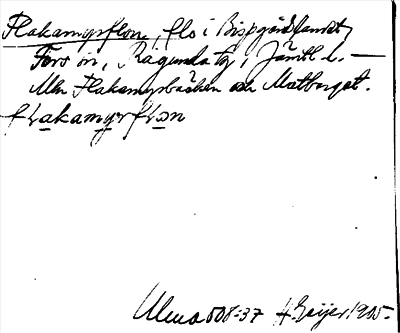 Flakamyrflon, flo i Bispgårdslandet,
Fors sn, Ragunda tg, Jämtl. l. —
Mn Flakamyrbäcken och Matberget.
fLakamyrfLɔn
Ulma 508:37 H. Geijer 1905.